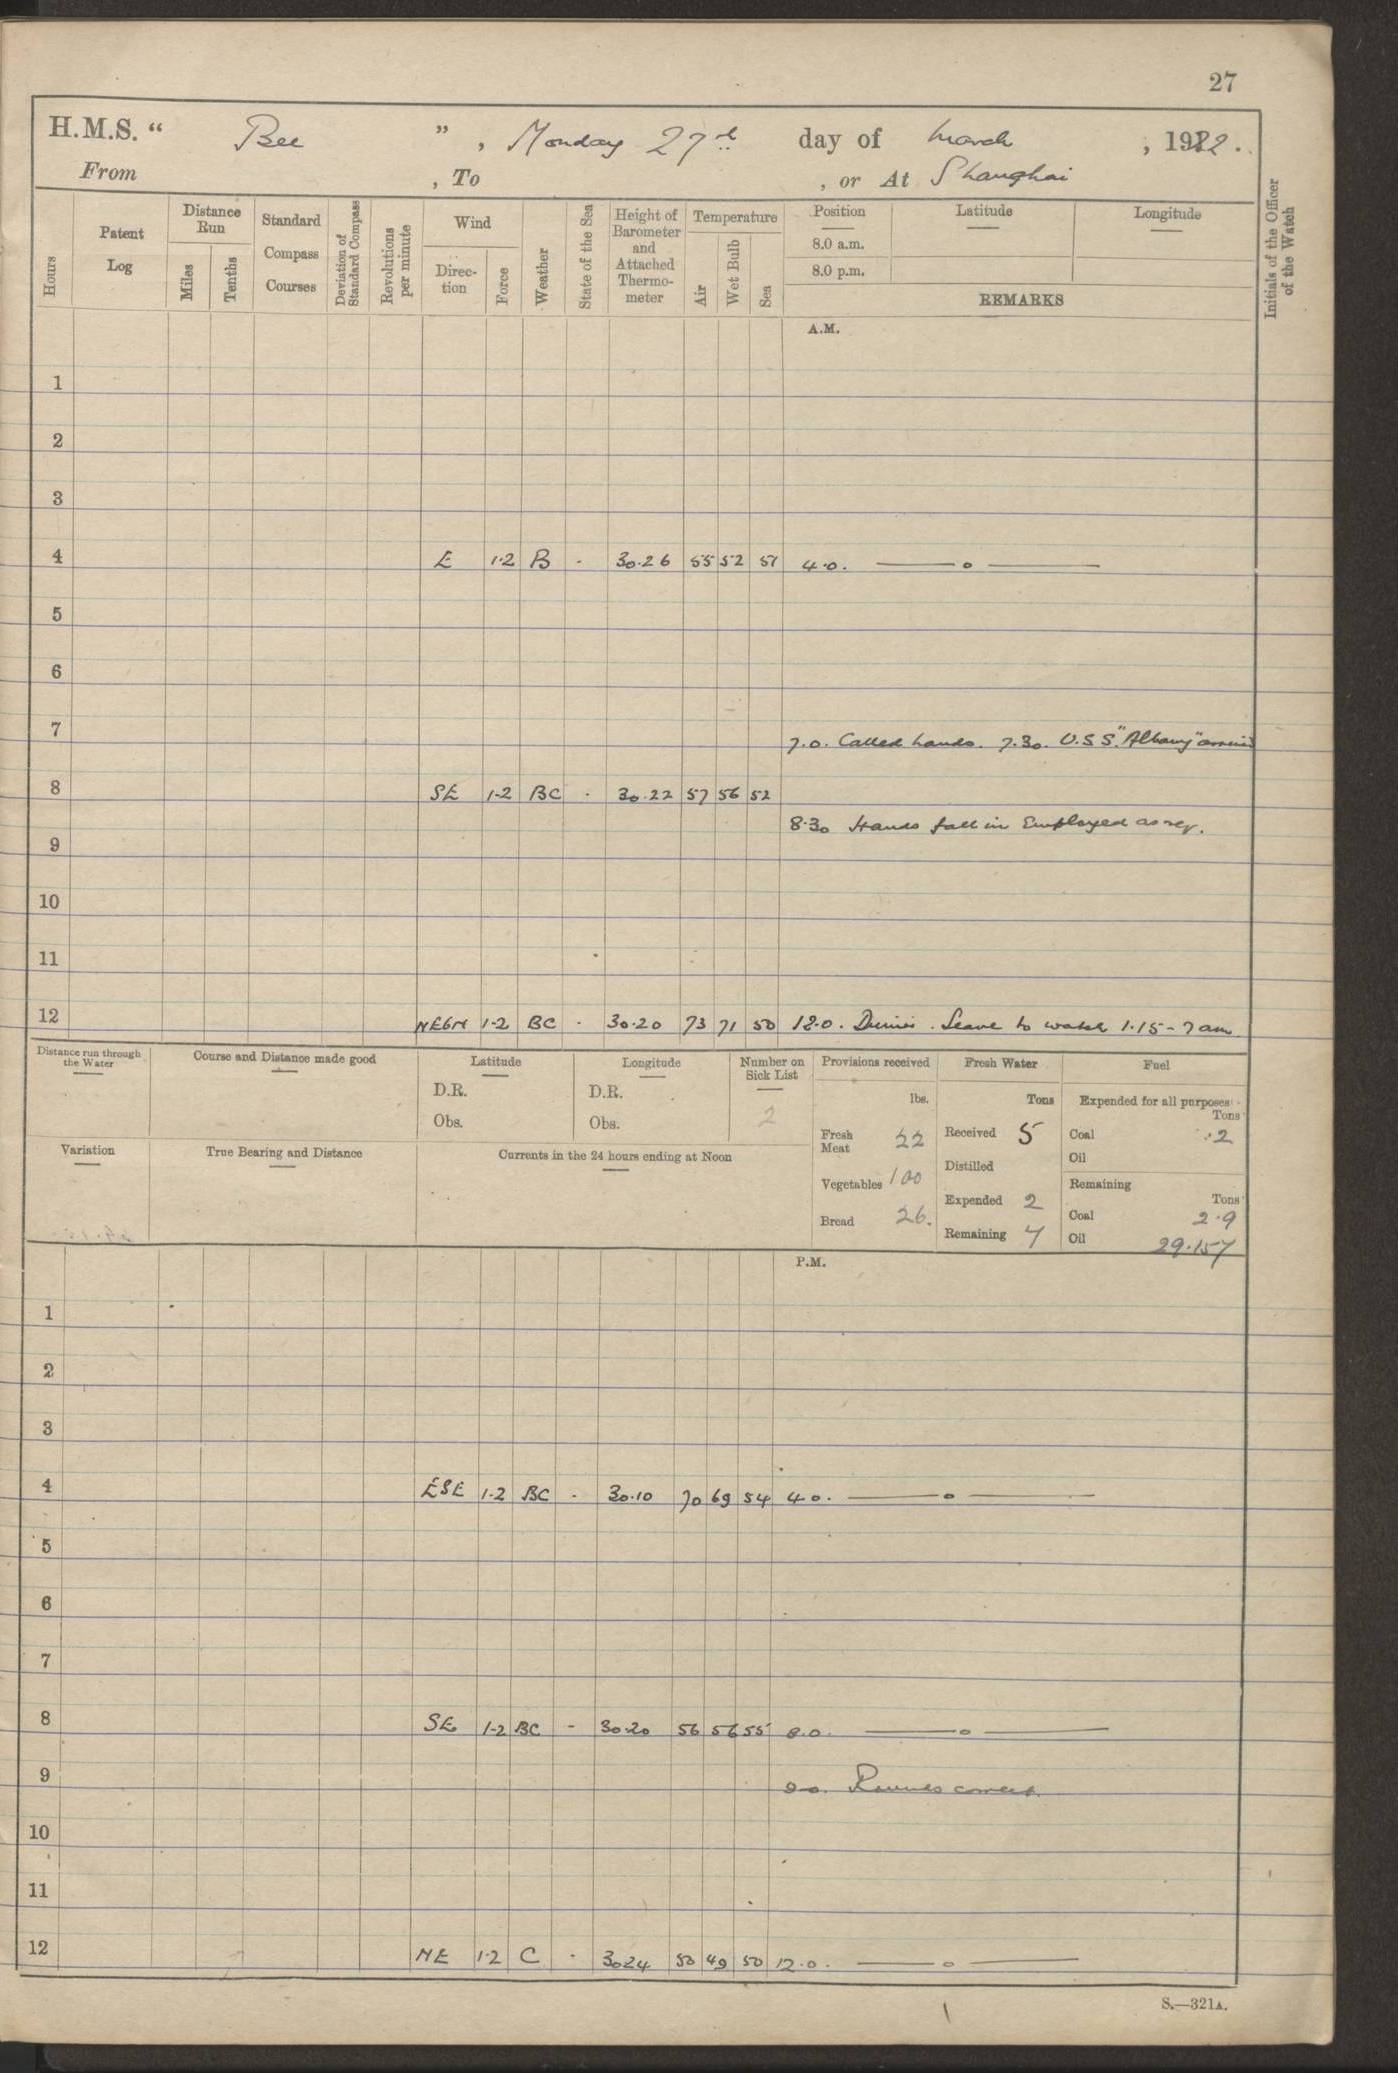 27
H.M.S. “ Bee ” , Monday 27th day of March , 1922 .
From , To , or At Shanghai
Hours
Patent Log
Distance Run
Miles
Tenths
Standard Compass Courses
Deviation of Standard Compass
Revolutions per minute
Wind
Direc-tion
Force
Weather
State of the Sea
Height of Barometer and Attached Thermo-meter
Temperature
Air
Wet Bulb
Sea
Position
8.0 a.m.
8.0 p.m.
Latitude
Longitude
REMARKS
Initials of the Officer of the Watch
A.M.
1
2
3
4 E 1·2 B - 30·26 55 52 51 4·0. —— o ——
5
6
7 7.0. Called hands. 7.30. U.S.S. "Albany" arrived
8 SE 1-2 BC - 30·22 57 56 52
8·30 Hands fall in Employed as req.
9
10
11
12 NE6N 1-2 BC - 30·20 73 71 50 12·0. Dinner. Leave to watch 1·15 - 7 am
Distance run through the Water
Course and Distance made good
Latitude
D.R.
Obs.
Longitude
D.R.
Obs.
Number on Sick List
2
Provisions received
lbs.
Fresh Meat 22
Vegetables 100
Bread 26.
Fresh Water
Tons
Received 5
Distilled
Expended 2
Remaining 7
Fuel
Expended for all purposes
Tons
Coal ·2
Oil
Remaining
Tons
Coal 2·9
Oil 29·157
Variation
True Bearing and Distance
Currents in the 24 hours ending at Noon
P.M.
1
2
3
4 ESE 1-2 BC - 30·10 70 69 54 4·0. —— o ——
5
6
7
8 SE 1-2 BC - 30·20 56 56 55 8.0. —— o ——
9 9.0. Rounds correct.
10
11
12 NE 1·2 C - 3024 50 49 50 12·0. —— o ——
S.—321A.